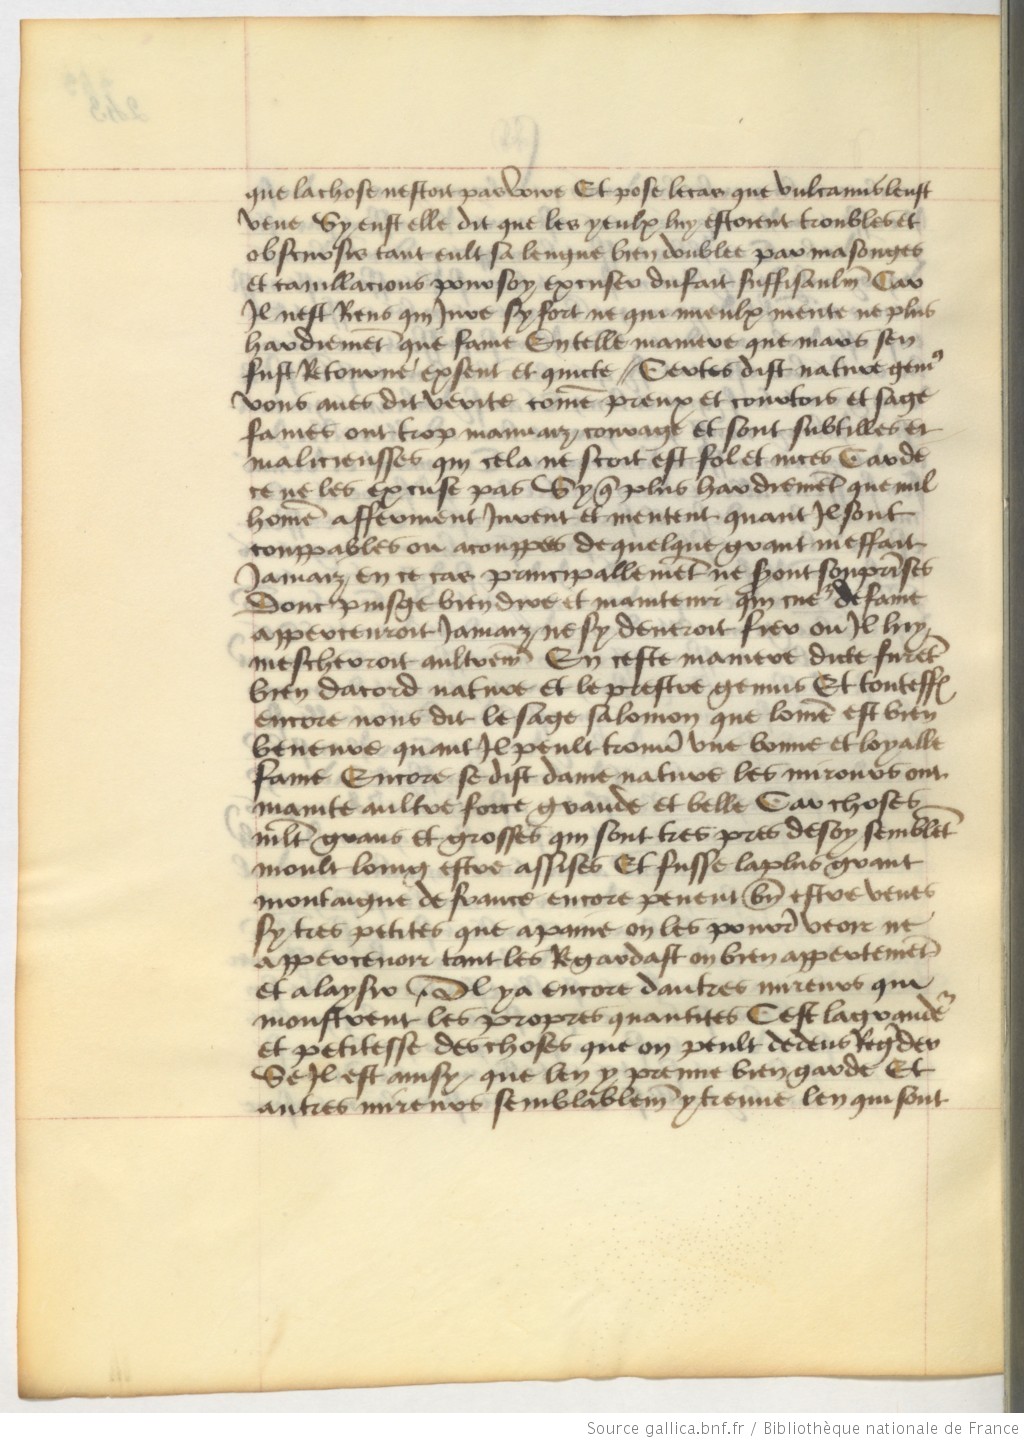 que lachose nestoit pas voire Et pose lecas que vulcanus leust
veue Sy eust elle dit que les yeulx luy estoient troublez et
obscursis tant eult sa lengue bien doublee par masonges
et cauillacions pour soy excuser du fait suffisaulm̃ Car
Il nest Riens qui Jure sy fort ne qui mieulx mente ne plus
hardiemẽt que fame En telle maniere que mars sen
fust Retourne exsent et quicte // Certes dist nature
vous aues dit verite com̃e preux et courtois et sage
fames ont trop mauuaiz couraige et sont subtilles et
malicieusses qui cela ne scoit est fol et nices Car de
ce ne les excuse pas Sy q̃ plus hardiemẽt que nul
hom̃e afferment Jurent et mentent quant Jl sont
couppables ou acouppes de quelque grant meffait
Jamaiz en ce cas principallemẽt ne sont souprĩses
Donc puis ge bien dire et maintenir qui de fame
apperceuroit Jamaiz ne sy deueroit fier ou Jl luy
mescherroit aultrem̃ En ceste maniere dicte furẽt
bien dacord nature et le prestre genius Et touteff
encore nous dit le sage salomon que lom̃e est bien
beneure quant Jl peult trouu̾ vne bonne et loyalle
fame Encore se dist dame nature les mirours ont
mainte aultre force grande et belle Car choses
ml̃t grans et grosses qui sont tres pres desoy semblẽt
moult loing estre assises Et fusse laplus grant
montaigne de france encore peuent bñ estre veues
sy tres petites que apaine on les pourr̾ veoir ne
apperceuoir tant les Regardast on bien appertemẽt
et alaysir Il ya encore dautres mireurs qui
monstrent les propres quantites Cest lagrande̾
et petitesse des choses que on peult dedens Reg̾der
Se Jl est ainsy que len y prenne bien garde Et
autres mireurs semblablem̃ y treuue len qui sont
Source gallica.bnf.fr / Bibliothèque nationale de France